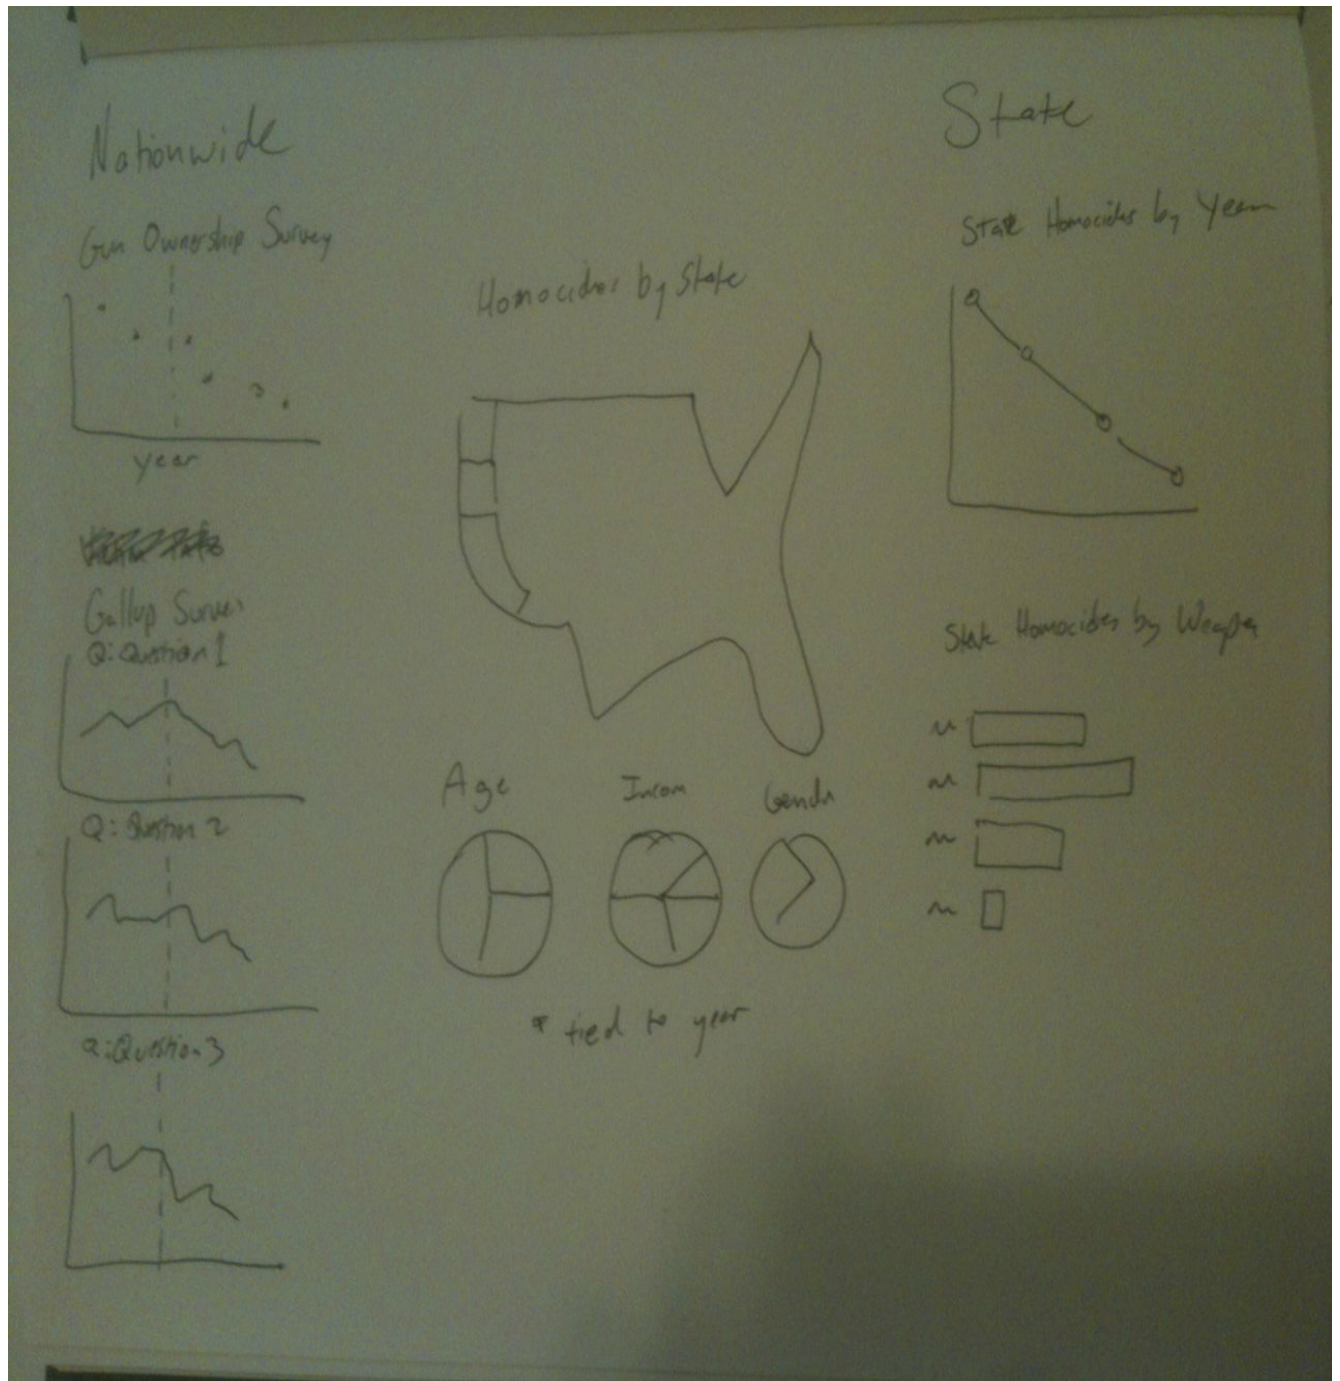 Nationwide
Gun Ownership Survey
year
Gallup Survey
Q: Question 1
Q: Question 2
Q: Question 3
Homocides by State
Age
Incom
Gendr
* tied to year
State
State Homocides by Year
State Homocides by Weapon